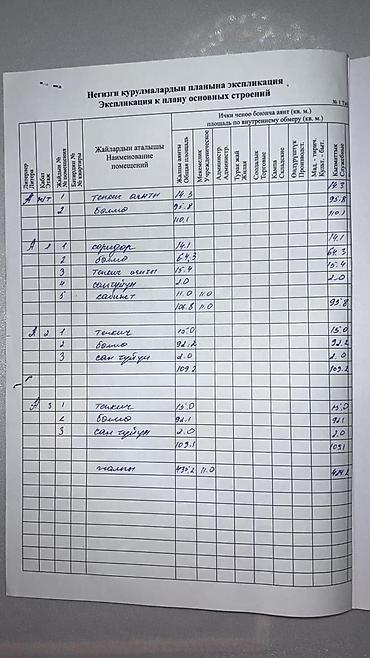 Негизги курулмалардын планына экспликация
Экспликация к плану основных строений
№ 1 Тип
Ички ченөө боюнча аянт (кв. м.)
площадь по внутреннему обмеру (кв. м.)
Литерлер Литера
Кабат Этаж
Жайдын № № помещения
Батирдин № № квартиры
Жайлардын аталышы Наименование помещений
Жалпы аянты Общая площадь
Мекемелик Учрежденческое
Администр. Администр.
Турак жай Жилая
Соодалык Торговые
Кампа Складские
Өндүрүштүк Производст.
Мад. - тирич. Культ. - быт.
Кызматтык Служебные
А п/т 1 тепкич аянты 14.3 14.3
2 бөлмө 95.8 95.8
110,1 110.1
А 1 1 коридор 14.1 14.1
2 бөлмө 64,3 64.3
3 тепкич аянты 15.4 15.4
4 сан түйүн 2.0 2.0
5 кабинет 11.0 11.0
106.8 11.0 95,8
А 2 1 тепкич 15.0 15.0
2 бөлмө 92.2 92.2
3 сан түйүн 2.0 2.0
109.2 109.2
А 3 1 тепкич 15.0 15.0
2 бөлмө 92.1 92.1
3 сан түйүн 2.0 2.0
109.1 109.1
жалпы 435.2 11.0 424.2